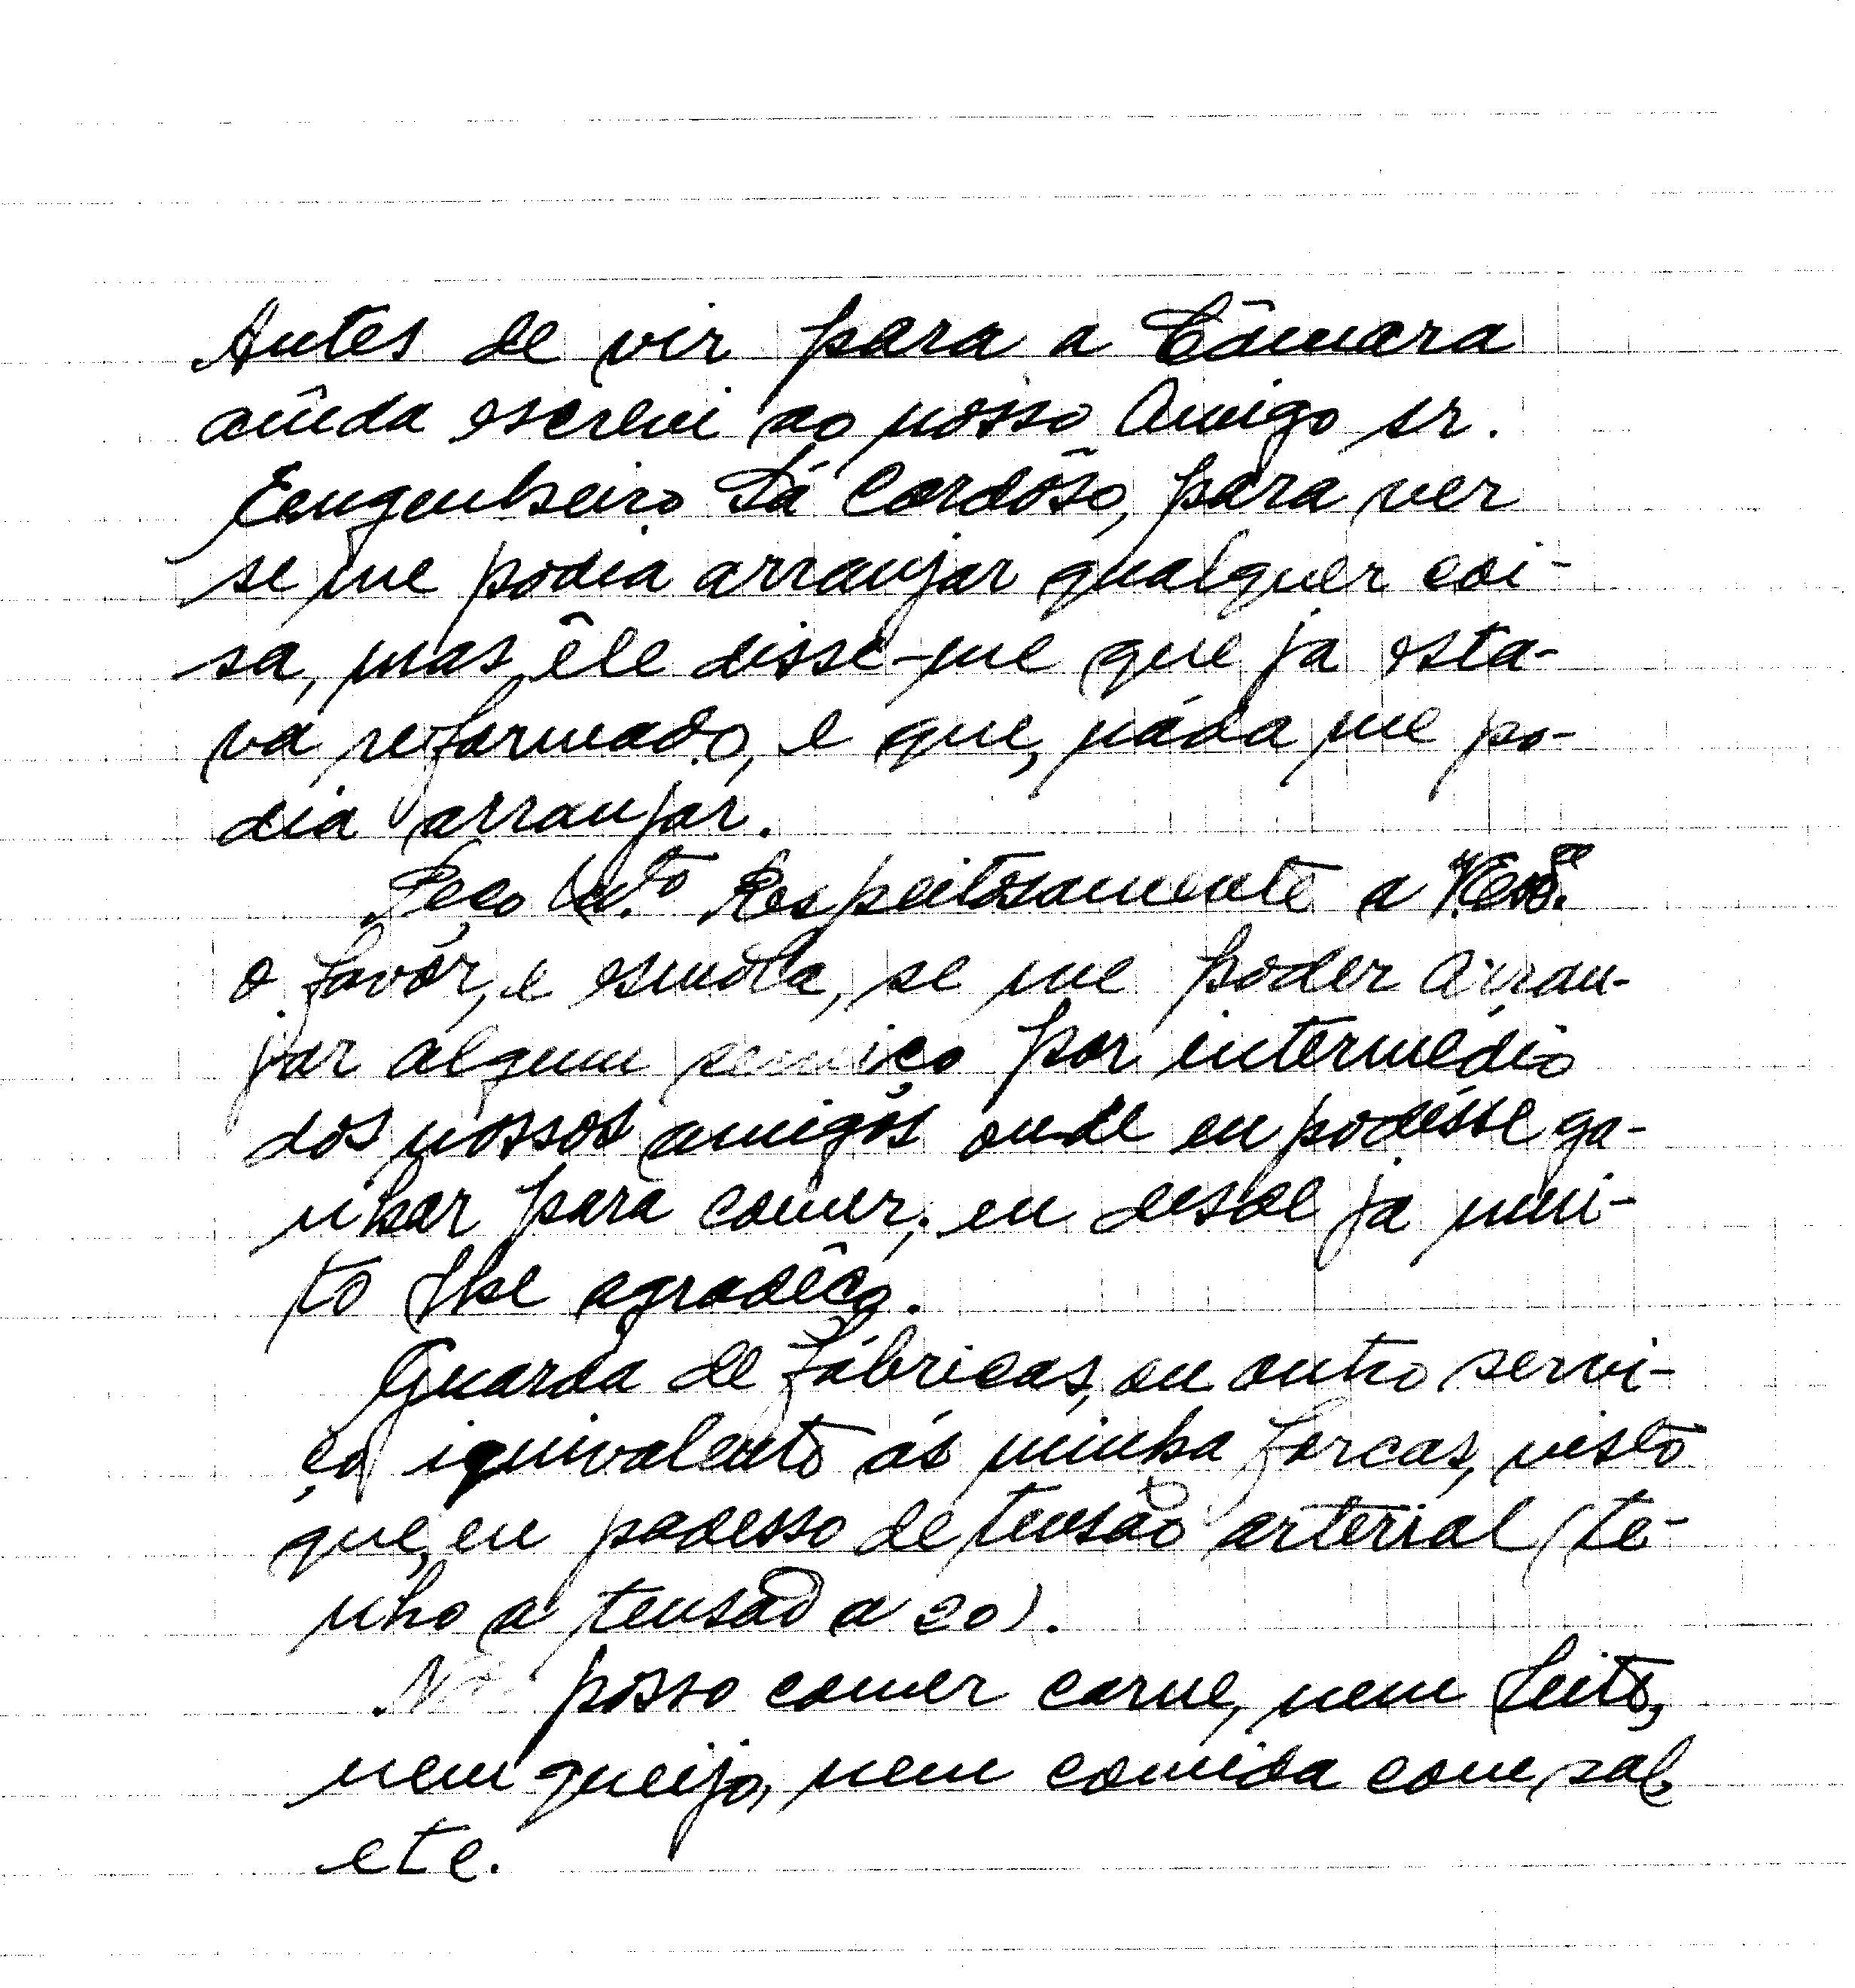 Antes de vir para a Câmara
aínda escrevi ao nosso Amigo sr.
Eengenheiro Sá Cardôso, para ver
se me podia arranjar qualquer coi-
sa, mas êle disse-me que ja esta-
va reformado, e que, náda me po-
dia arranjar.
Peço M.to Respeitosamente a V.
o favôr, e esmola, se me poder arran-
jar algum serviço por intermédio
dos nossos amigos onde eu podésse ga-
nhar para comer, eu desde ja mui-
to lhe agradêço.
Guarda de fábricas, ou outro servi-
ço iquivalente ás minha forcas, visto
que, eu padesso de tensão arterial (te-
nho a tensão a 20).
Não posso comer carne, nem Leite,
nem queijo, nem comida com sal,
etc.